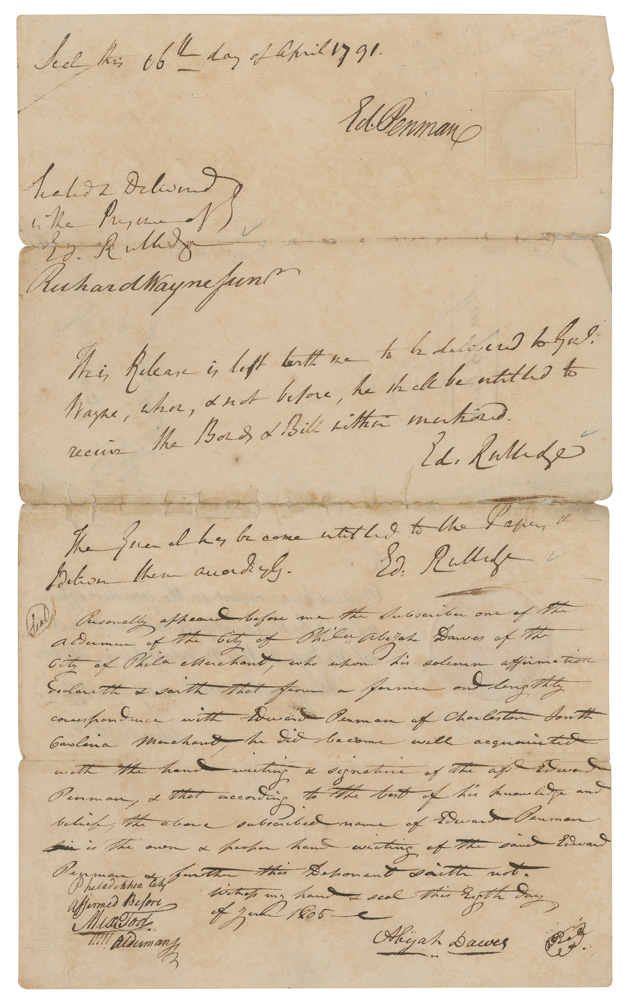 Seal, this 06th day of April 1791.
Ed. Penman
Sealed & Delivered
in the Presence of
Ed. Rutledge
Richard Wayne Junr
This Release is left with me to be delivered to Genl.
Wayne, when, & not before, he shall be entitled to
receive the Bonds & Bill within mentioned.
Ed. Rutledge
The General has become entitled to the Papers, &
deliver them accordingly.
Ed. Rutledge
Seal
Personally appeared before me the Subscriber one of the
Aldermen of the City of Phila Abijah Dawes of the
City of Phila Merchant, who upon his solemn affirmation
declareth & saith that from a former and lengthy
correspondence with Edward Penman of Charleston South
Carolina Merchant, he did become well acquainted
with the hand writing & signature of the afsd Edward
Penman, & that according to the best of his knowledge and
belief, the above subscribed name of Edward Penman
is the own & proper hand writing of the said Edward
Penman & further this Deponent saith not.
Philadelphia City
Affirmed Before
Alderman
Witness my hand & seal this Eigth day
of 1805
Abijah Dawes